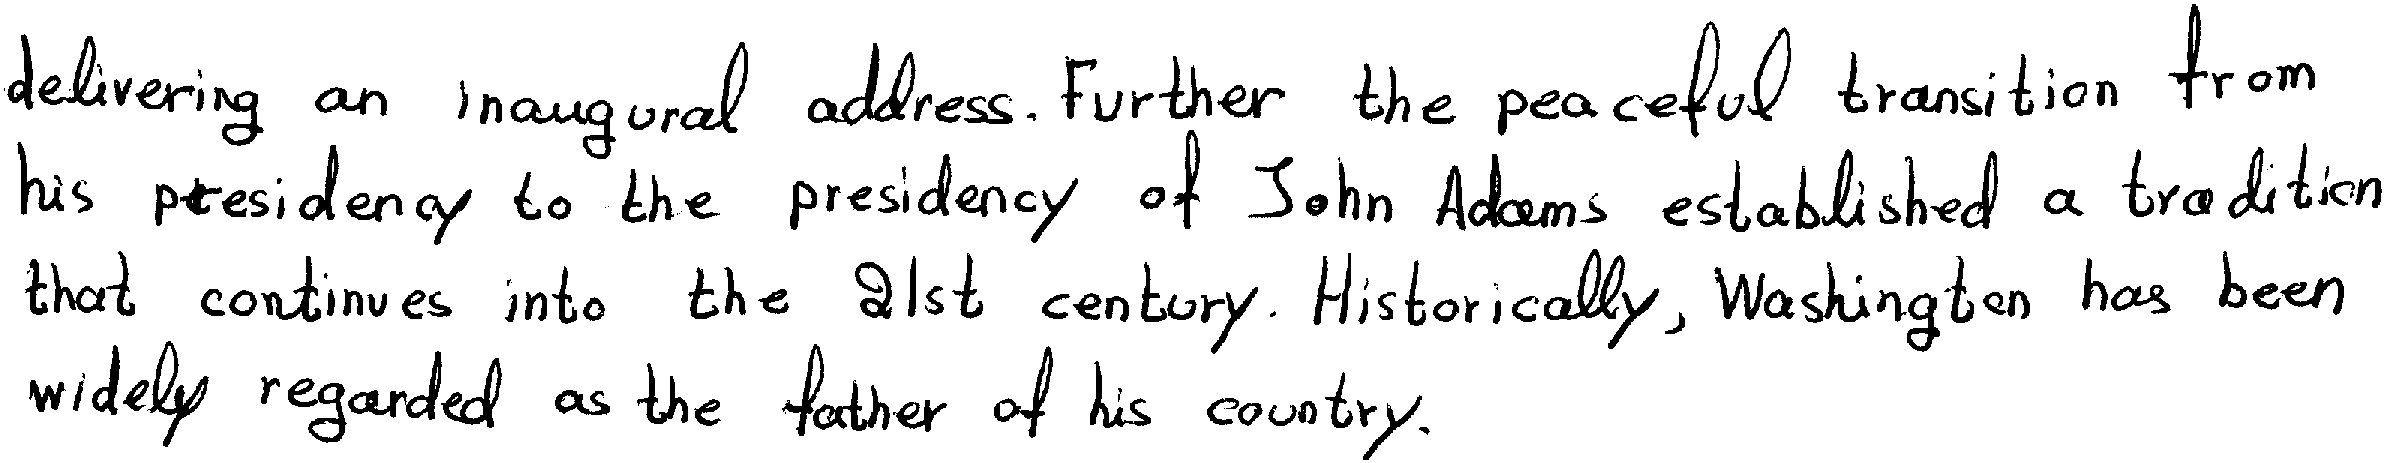 delivering an inaugural address. Further the peaceful transition from
his presidency to the presidency of John Adams established a tradition
that continues into the 21st century. Historically, Washington has been
widely regarded as the father of his country.